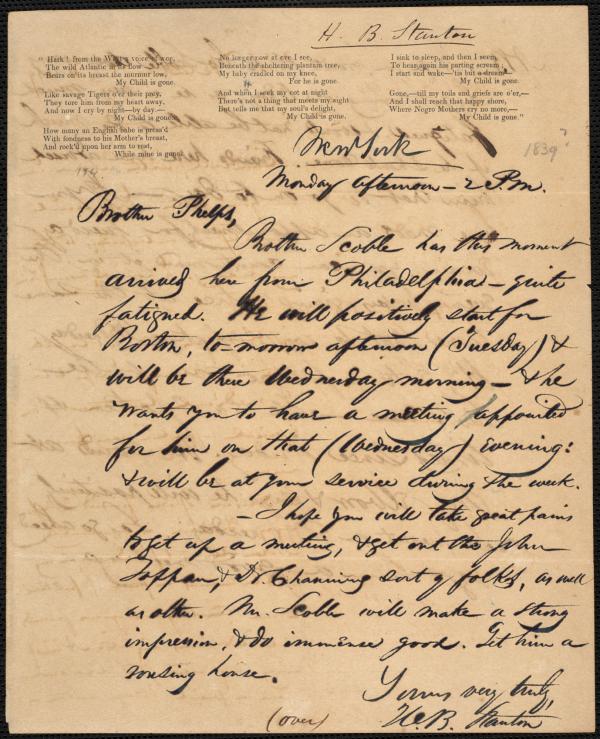 H. B. Stanton
"Hark! from the West a voice of wor,
The wild Atlantic in its flow
Bears on its breast the murmur low,
My Child is gone.
Like savage Tigers o'er their prey,
They tore him from my heart away,
And now I cry by night—by day,—
My Child is gone.
How many an English babe is press'd
With fondness to his Mother's breast,
And rock'd upon her arm to rest,
While mine is gone.
No longer now at eve I see,
Beneath the sheltering plantain tree,
My baby cradled on my knee,
For he is gone.
And when I seek my cot at night
There's not a thing that meets my sight
But tells me that my soul's delight,
My Child is gone.
I sink to sleep, and then I seem
To hear again his parting scream
I start and wake—'tis but a dream:
My Child is gone.
Gone,—till my toils and griefs are o'er,—
And I shall reach that happy shore,
Where Negro Mothers cry no more,—
My Child is gone."
New York
1839?
Monday afternoon – 2 P.M.
Brother Phelps,
Brother Scoble has this moment
arrived here from Philadelphia – quite
fatigued. He will positively start for
Boston, to-morrow afternoon (Tuesday) &
will be there Wednesday morning – & he
wants you to have a meeting appointed
for him on that (Wednesday) evening:
& will be at your service during the week.
– I hope you will take great pains
to get up a meeting, & get out the John
Tappan, & Dr. Channing sort of folks, as well
as other. Mr. Scoble will make a strong
impression, & do immense good. Get him a
rousing house.
Yours very truly,
H. B. Stanton
(over)